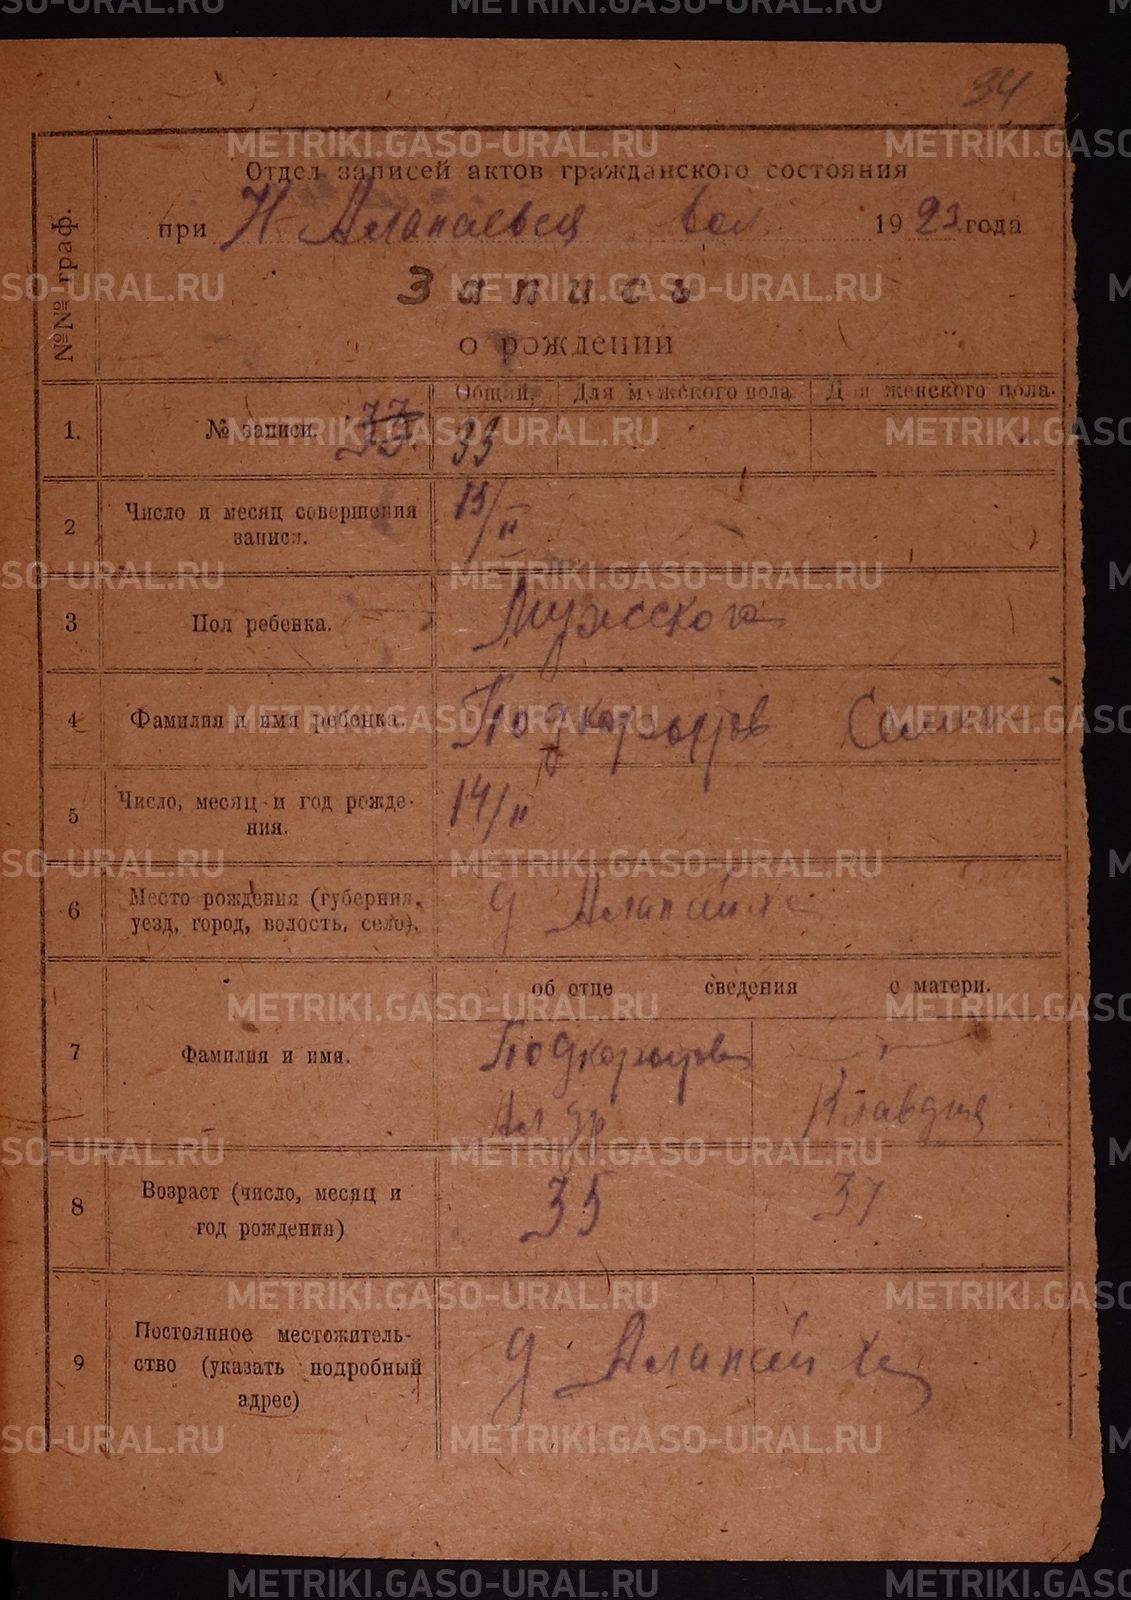 34
Отдел записей актов гражданского состояния
при Н-Алапаевск вол 1923 года
Запись
о рождении
№№ граф.
Общий. Для мужского пола Для женского пола.
1. № записи. 33. 33
2 Число и месяц совершения записи. 15/II
3 Пол ребенка. Мужского
4 Фамилия и имя ребенка. Подкорытов Семен
5 Число, месяц и год рожде-
ния. 14/II
6 Место рождения (губерния,
уезд, город, волость, село). д Алапаиха
об отце сведения о матери.
7 Фамилия и имя. Подкорытов
Ал др Клавдия
8 Возраст (число, месяц и
год рождения) 35 37
9 Постоянное местожитель-
ство (указать подробный
адрес) д Алапаиха
METRIKI.GASO-URAL.RU